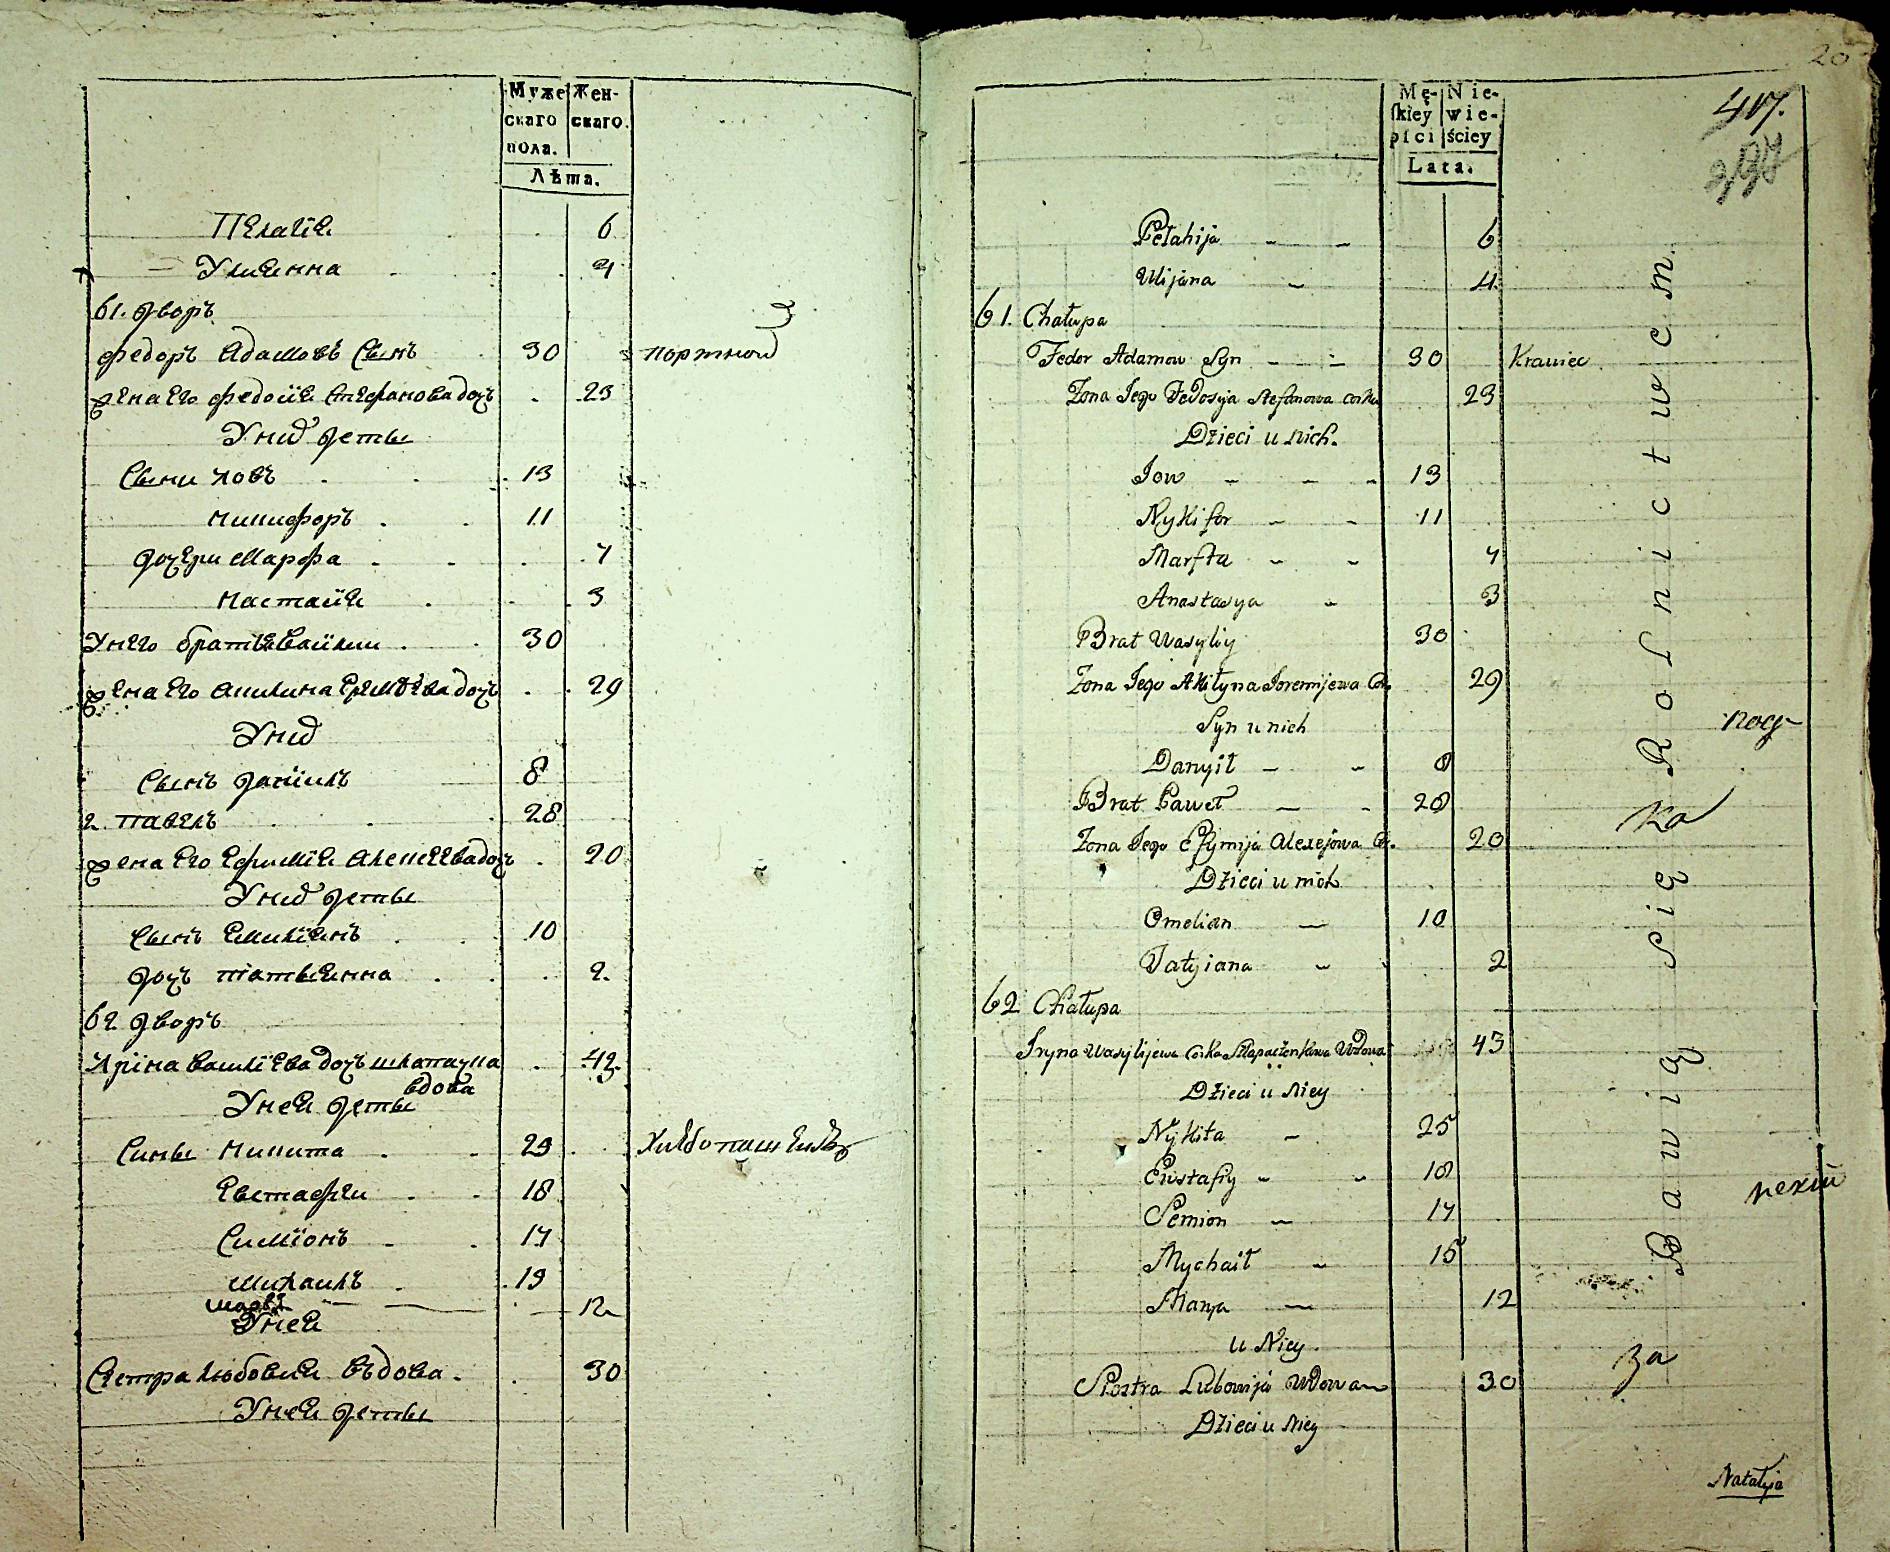 Муже Жен-
скаго скаго.
пола.
Лѣта.
Пелагіе 6
Улиенна 4
61. дворъ
Федоръ Адамовъ Сынъ 30 портной
жена его Федосiе Стефанова дочь 23
У них дети
Сыни Иовъ 13
Никифоръ 11
дочери Марфа 7
Настасіе 3
У него братъ Василии 30
жена его Акилина Еремѣева дочь 29
У них
Сынъ Данiилъ 8
2. Павелъ 28
жена его Ефимiе Алексеева дочь 20
У них дети
Сынъ Емилiенъ 10
дочь Татьиенна 2.
62 дворъ
Ирiна Василiева дочь 43.
вдова
У ней дети
Сины Никита 25 Хлѣбопашецъ
Евстафеи 18
Симiонъ 17
Михаилъ 15
12
У ней
Сестра Любовие вдова. 30
У ней дети
20
Mę- Nie-
ſkiey wie-
płci ściey
Lata.
417.
397
Pełahija 6
Ulijana 4
61. Chałupa
Fedor Adamow Syn 30 Krawiec
Żona Jego Fedosya Stefanowa corka 23
Dzieci u nich.
Jow 13
Nykifor 11
Marfta 7
Anastasya 3
Brat Wasyliy 30
Żona Jego Akiłyna Joremijewa Co. 29
Syn u nich
Danyił 8
Brat Paweł 28
Żona Jego Efymija Alexejowa C. 20
Dzieci u nich
Omelian 10
Tatyiana 2
62 Chałupa
Iryna Wasylijewa Corka Słapaczenkowa Wdowa 43
Dzieci u Niey
Nykita 25
Eustafiy 18
Semion 17
Mychaił 15
Marya 12
u Niey
Siostra Lubowija Wdowa 30
Dzieci u Niey
Bawią się Rolnictwem
ка
за
Natalija